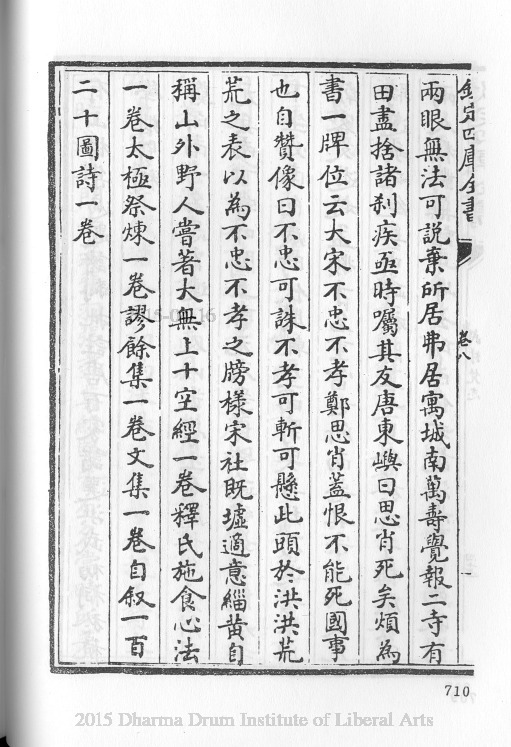 欽定四庫全書
卷八
兩眼無法可說棄所居弗居寓城南萬壽覺報二寺有
田盡捨諸刹疾亟時囑其友唐東嶼曰思肖死矣煩為
書一牌位云大宋不忠不孝鄭思肖蓋恨不能死國事
也自贊像曰不忠可誅不孝可斬可懸此頭於洪洪荒
荒之表以為不忠不孝之牓樣宋社既墟適意緇黄自
稱山外野人嘗著大無上十空經一卷釋氏施食心法
一卷太極祭煉一卷謬餘集一卷文集一卷自叙一百
二十圖詩一卷
710
2015 Dharma Drum Institute of Liberal Arts